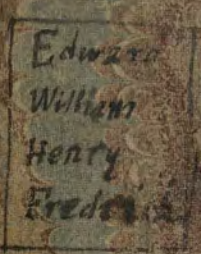 Edward
William
Henry
Frederick